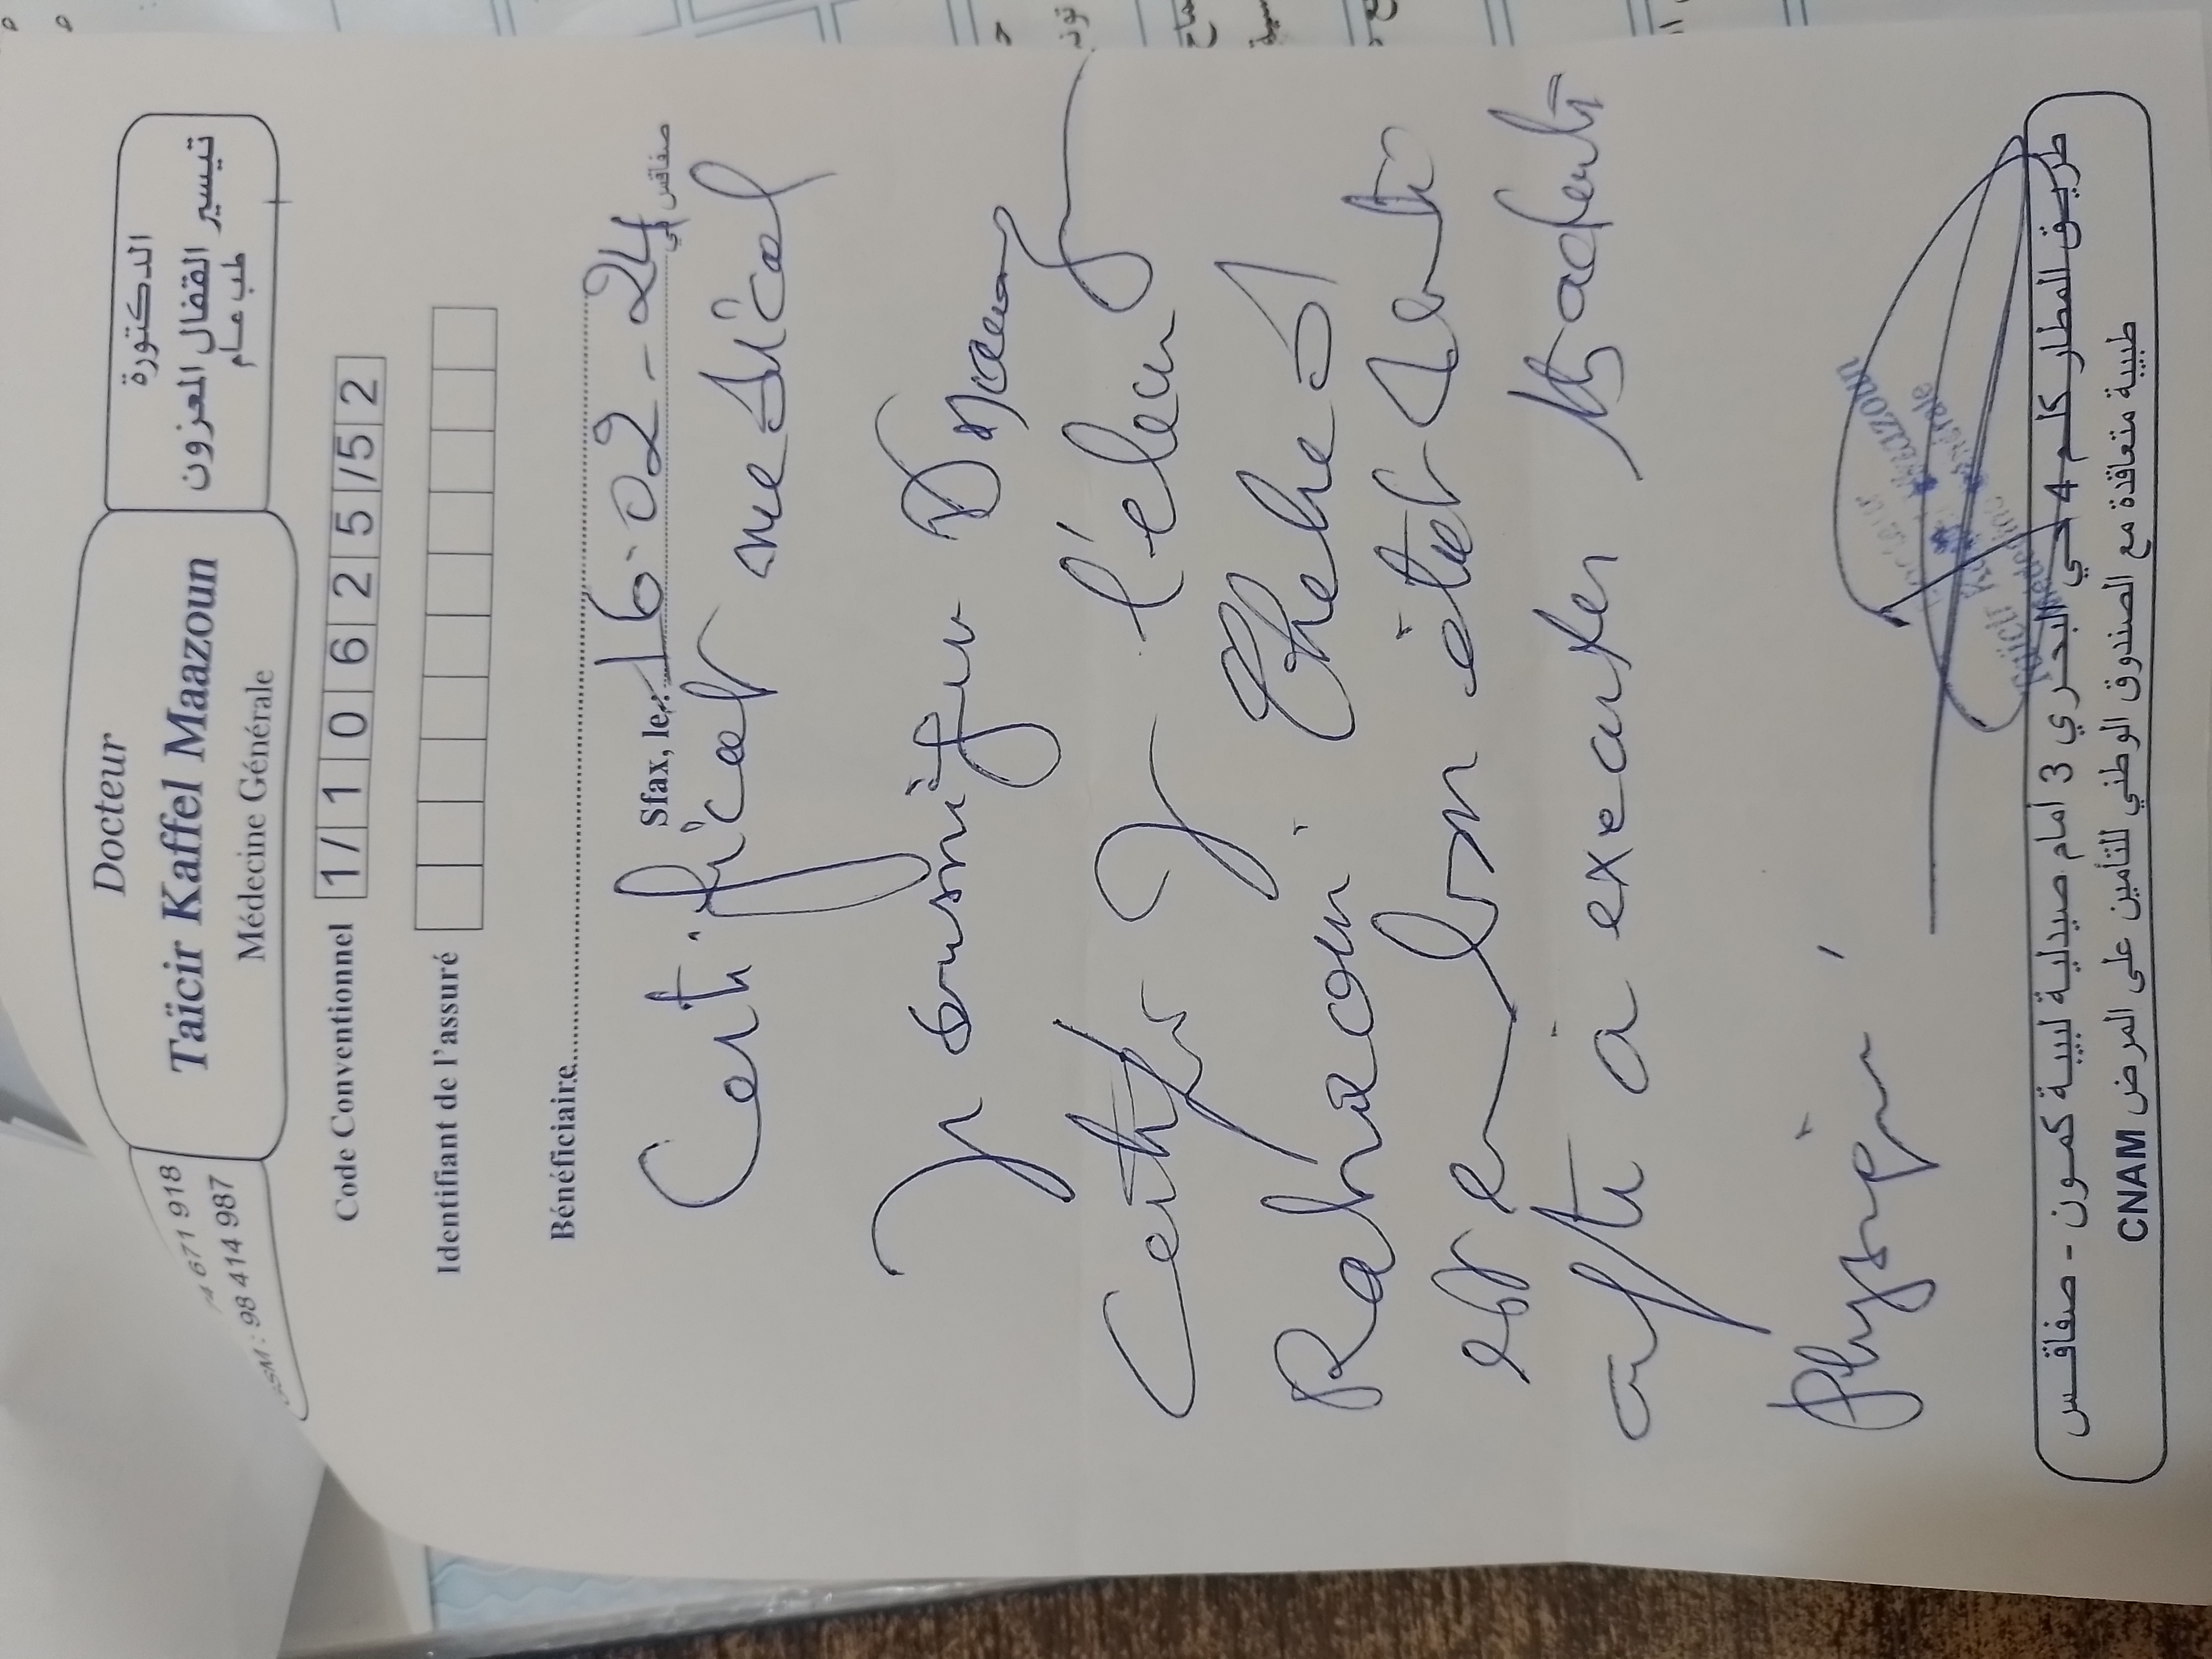 Docteur
Taïcir Kaffel Maazoun
Médecine Générale
الدكتورة
تيسير القفال المعزون
طب عام
74 671 918
GSM : 98 414 987
Code Conventionnel 1/10625/52
Identifiant de l'assuré
Bénéficiaire
Sfax, le 16-02-24 صفاقس في
Certificat médical
Je soussigné Dr
Certifie que l'élève
Rahmouni
est en bon état de santé
apte à exercer
physique
طريق المطار كلم 4 حي البحري 3 أمام صيدلية لبيبة كمون - صفاقس
طبيبة متعاقدة مع الصندوق الوطني للتأمين على المرض CNAM